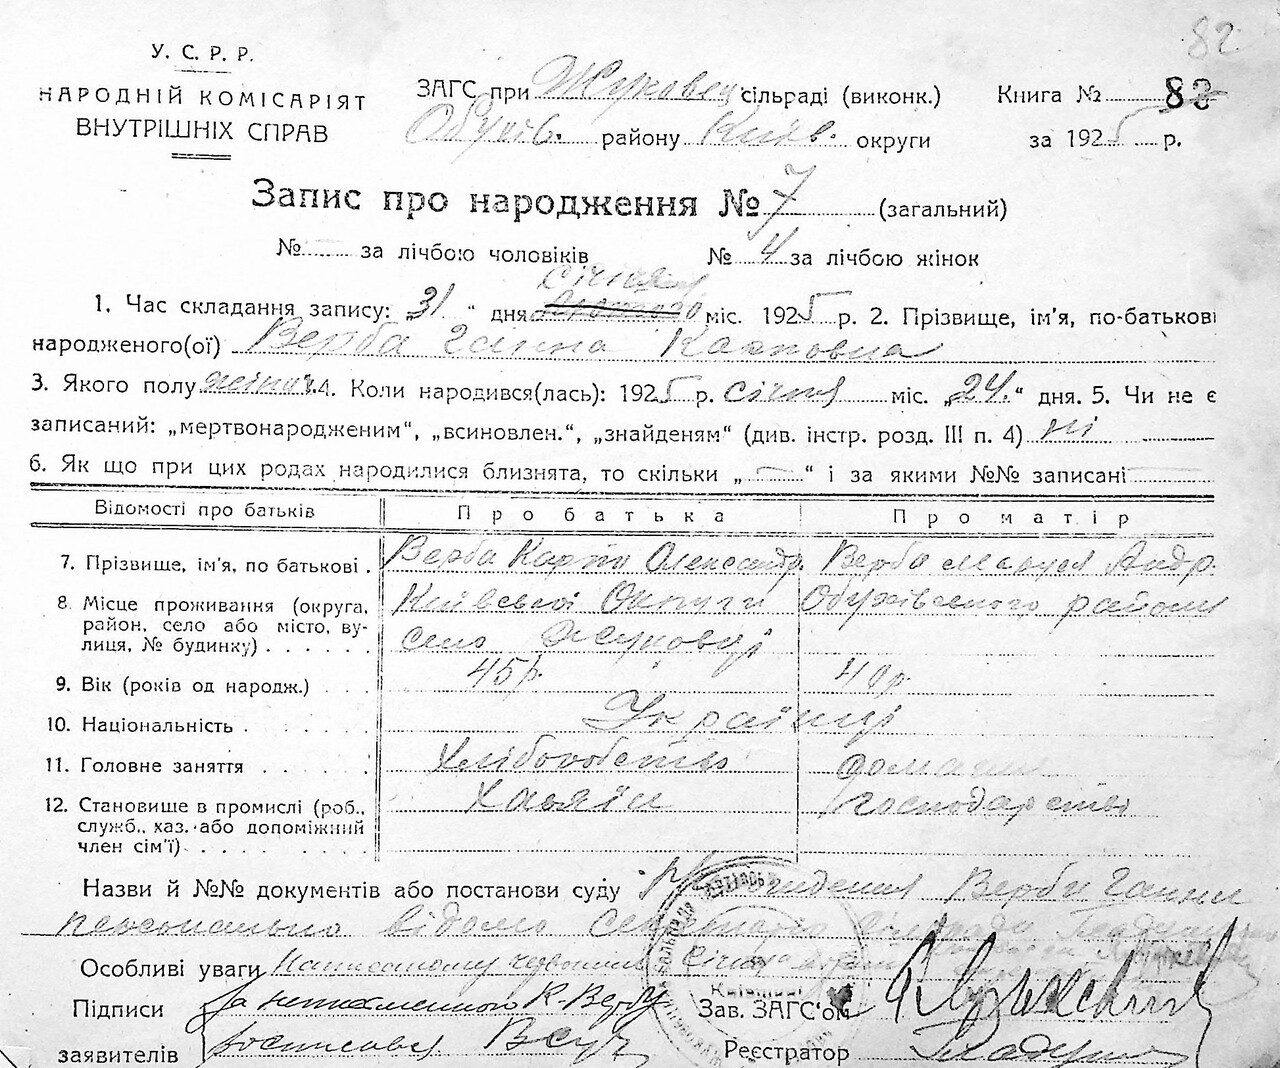 82
У. С. Р. Р.
НАРОДНІЙ КОМІСАРІЯТ
ВНУТРІШНІХ СПРАВ
ЗАГС при Жуковец сільраді (виконк.) Книга №
Обухів. району Київ. округи за 1925 р.
Запис про народження № 7 (загальний)
№ за лічбою чоловіків № 4 за лічбою жінок
січня
1. Час складання запису: „31“ дня лютого міс. 1925 р. 2. Прізвище, ім'я, по-батькові
народженого(ої) Верба Ганна Карповна
3. Якого полу жіноч. 4. Коли народився(лась): 1925 р. січня міс. „24.“ дня. 5. Чи не є
записаний: „мертвонародженим“, „всиновлен.“, „знайденям“ (див. інстр. розд. III п. 4) ні
6. Як що при цих родах народилися близнята, то скільки „—“ і за якими №№ записані
Відомості про батьків Про батька Про матір
7. Прізвище, ім'я, по батькові . Верба Карпо Олександр. Верба Маруся Андр.
8. Місце проживання (округа, Київської Округи Обухівського району
район, село або місто, ву- село Жуковці
лиця, № будинку) . . . . . .
9. Вік (років од народж.) . . . 45р. 40р.
10. Національність . . . . . . Українці
11. Головне заняття . . . . . Хліборобство домашн
12. Становище в промислі (роб., Хазяїн господарство
служб., хаз. або допоміжний
член сім'ї) . . . . . . . .
Назви й №№ документів або постанови суду Верби Ганни
персонально відомо
Особливі уваги Написаному
Підписи За неписьменного К. Вербу Зав. ЗАГС'ом
заявителів росписовся Реєстратор